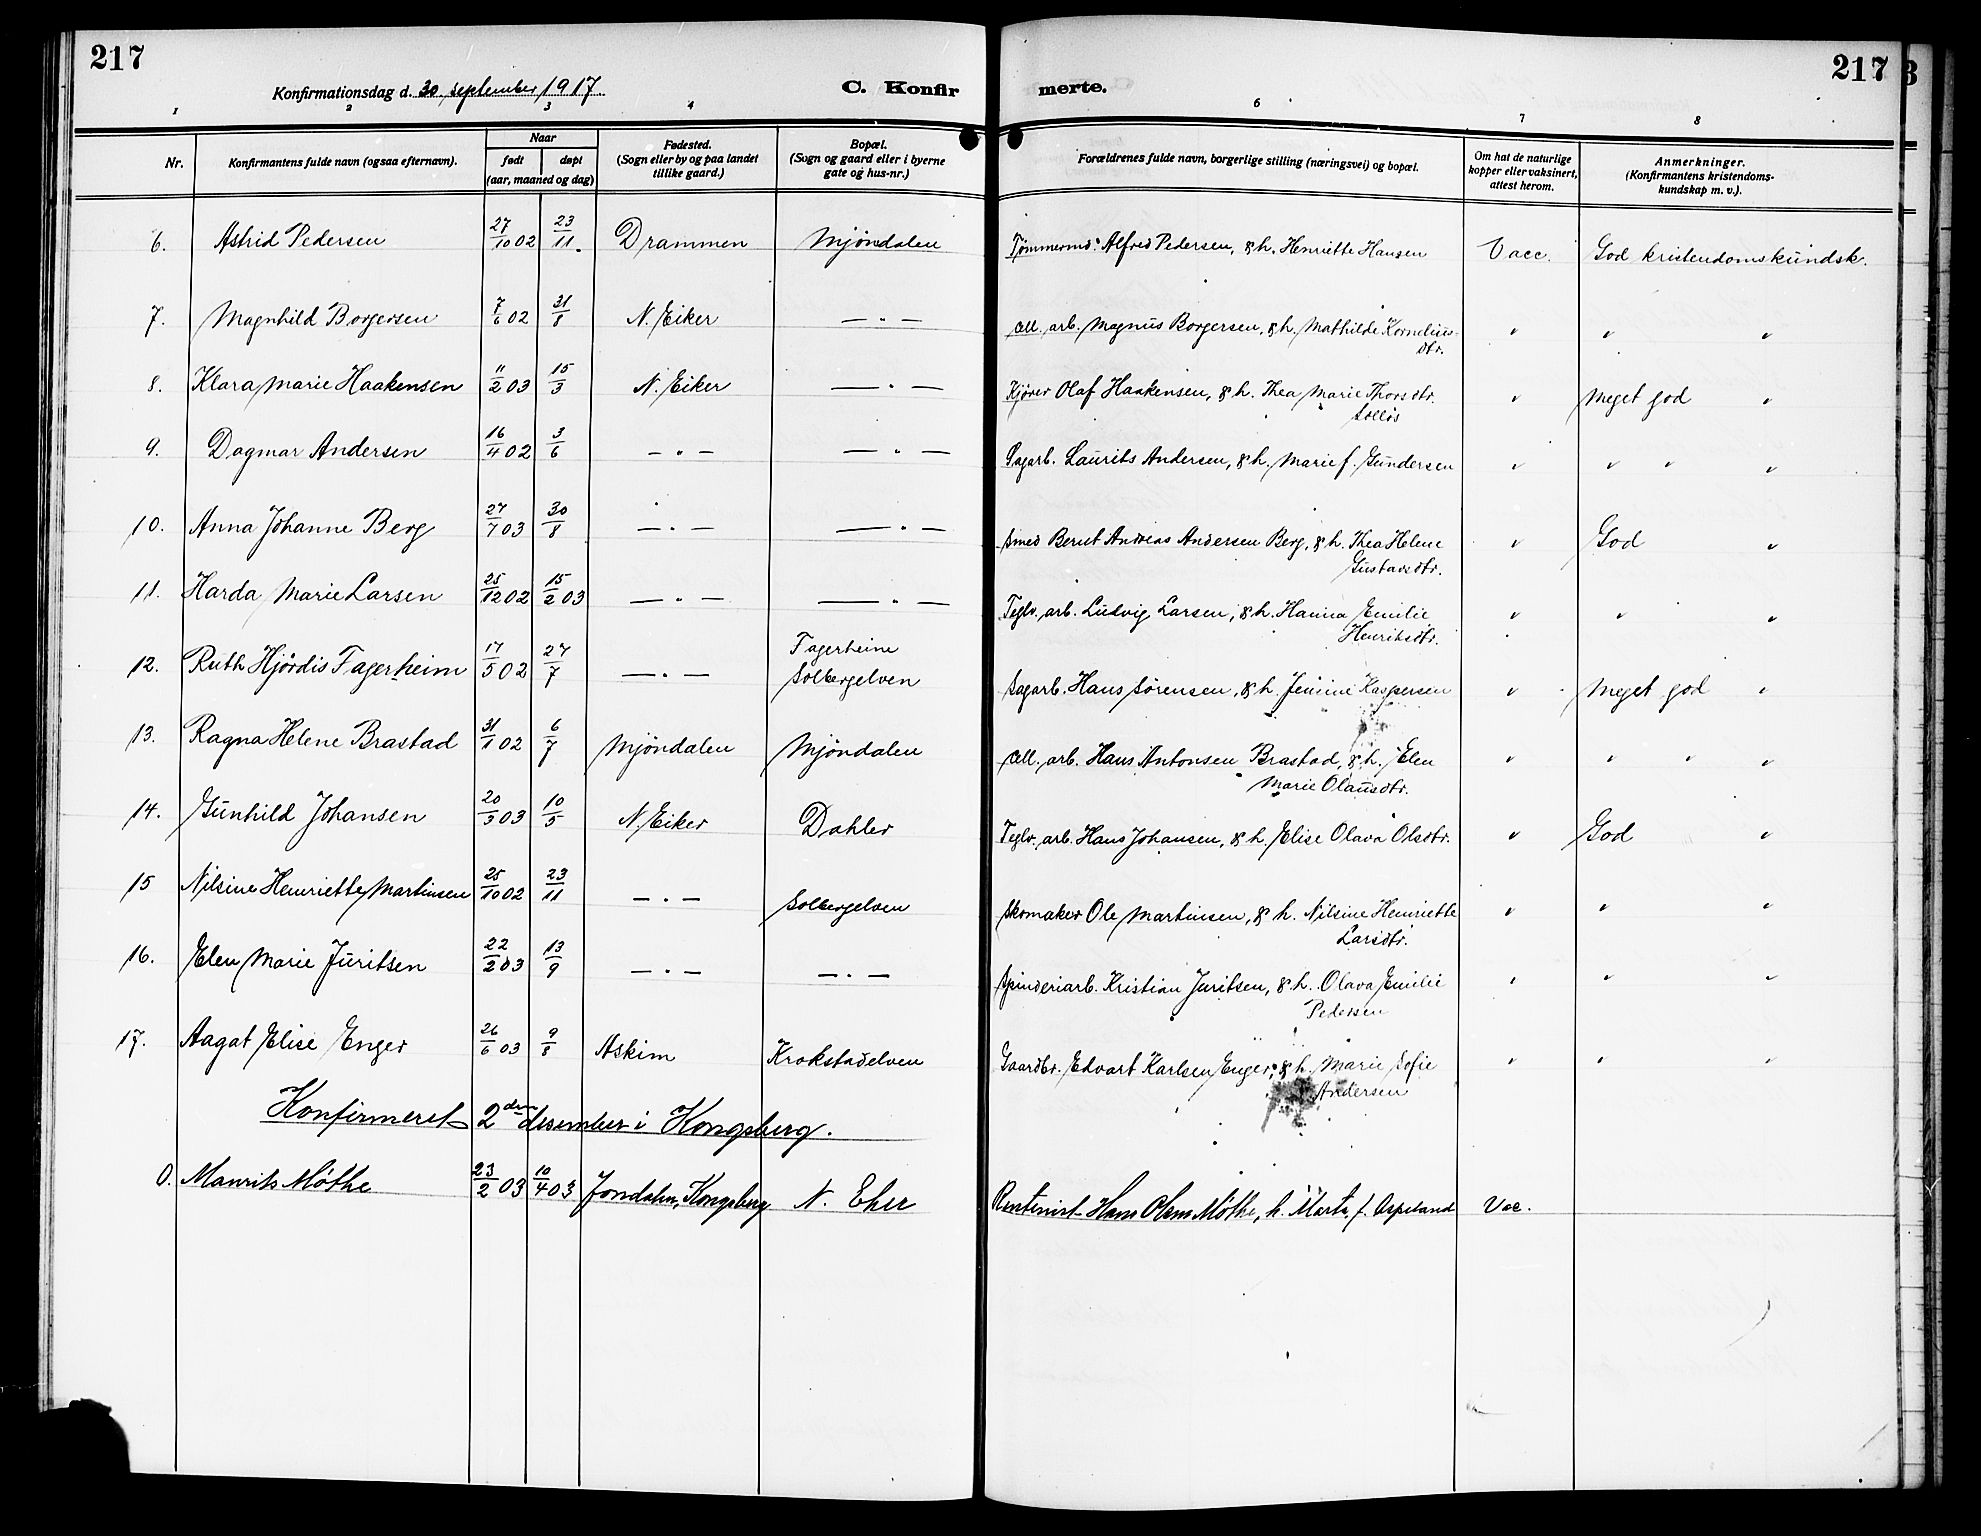 217
Konfirmationsdag d. 30 september 1917.
C. Konfir
merte.
217
1 2 3 4 6 7 8
Nr. Konfirmantens fulde navn (ogsaa efternavn). Naar født døpt (aar, maaned og dag) Fødested. (Sogn eller by og paa landet tillike gaard.) Bopæl. (Sogn og gaard eller i byerne gate og hus-nr.) Forældrenes fulde navn, borgerlige stilling (næringsvei) og bopæl. Om hat de naturlige kopper eller vaksinert, attest herom. Anmerkninger. (Konfirmantens kristendoms- kundskap m. v.).
6. Astrid Pedersen 27/10 02 23/11. Drammen Mjöndalen Tømmermd. Alfred Pedersen, & h. Henriette Hansen Vacc. God kristendomskundsk.
7. Magnhild Borgersen 7/6 02 31/8 N. Eiker — " — all. arb. Magnus Borgersen, & h. Mathilde Kornelius-
dtr. " " "
8. Klara Marie Haakensen 11/2 03 15/3 N. Eiker — " — Kjører Olaf Haakensen, & h. Thea Marie Thorsdtr.
Solløs " Meget god "
9. Dagmar Andersen 16/4 02 3/6 — " — — " — Sagarb. Laurits Andersen, & h. Marie f. Gundersen " " " "
10. Anna Johanne Berg 27/7 03 30/8 — " — — " — Smed Bernt Andreas Andersen Berg, & h. Thea Helene
Gustavsdtr. " God "
11. Harda Marie Larsen 25/12 02 15/2 03 — " — — " — Teglv. arb. Ludvig Larsen, & h. Hanna Emilie
Henriksdtr. " " "
12. Ruth Hjördis Fagerheim 17/5 02 27/7 — " — Fagerheim
Solbergelven Sagarb. Hans Sørensen, & h. Jensine Kaspersen " Meget god "
13. Ragna Helene Brastad 31/1 02 6/7 Mjöndalen Mjöndalen all. arb. Hans Antonsen Brastad, & h. Elen
Marie Olausdtr. " " " "
14. Gunhild Johansen 20/3 03 10/5 N. Eiker Dahler Teglv. arb. Hans Johansen, & h. Elise Olava Olsdtr. " God "
15 Nilsine Henriette Martinsen 25/10 02 23/11 — " — Solbergelven Skomaker Ole Martinsen, & h. Nilsine Henriette
Larsdtr. " " "
16. Elen Marie Juritsen 22/2 03 13/9 — " — — " — Spinderiarb. Kristian Juritsen, & h. Olava Emilie
Pedersen " " "
17. Aagot Elise Enger 26/6 03 9/8 Askim Krokstadelven Gaardbr. Edvart Karlsen Enger, & h. Marie Sofie
Andersen " " "
Konfirmeret 2den desember i Kongsberg.
0. Maurits Møthe 23/2 03 10/4 03 Jondalen, Kongsberg N. Eker Rentenist Hans Olsen Møthe, h. Marta f. Aspeland Vac.